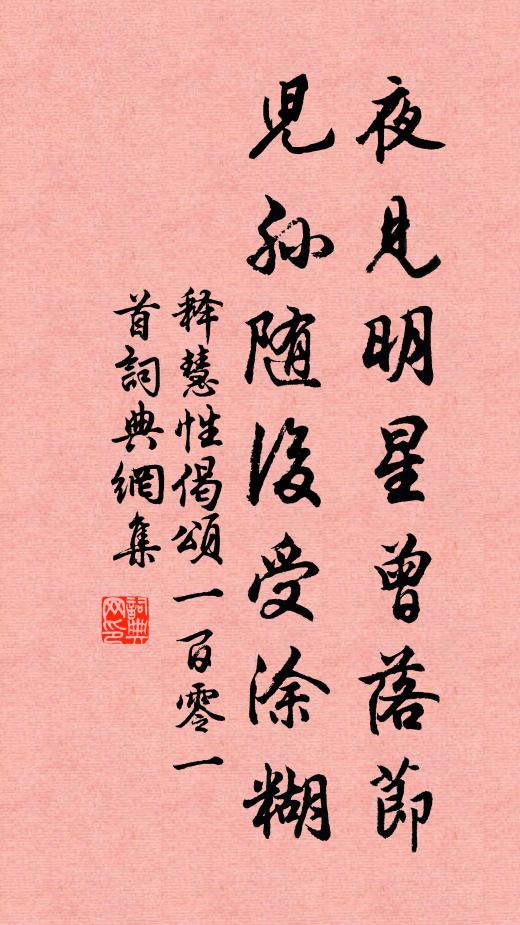 夜見明星曾落節
児孫随後受涂糊
释慧性偈頌一百零一
首詞典網集
詞典
网印